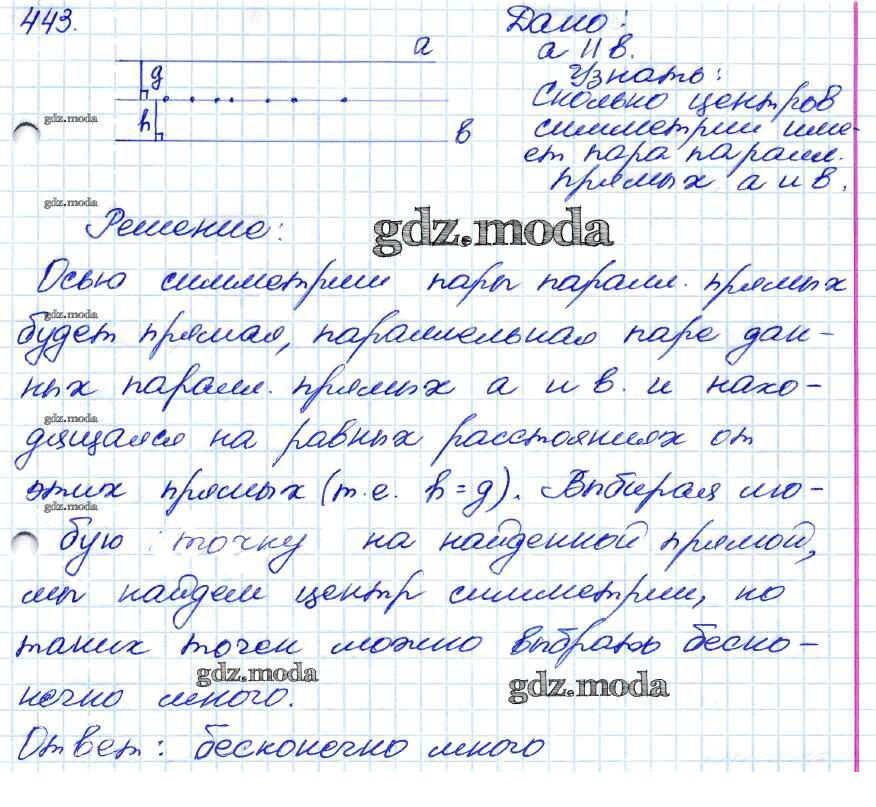 443.
Дано:
a || в.
Узнать:
Сколько центров
симметрии име-
ет пара паралл.
прямых а и в.
a
g
h
в
gdz.moda
gdz.moda
Решение:
gdz.moda
Осью симметрии пары паралл. прямых
gdz.moda
будет прямая, параллельная паре дан-
ных паралл. прямых а и в. и нахо-
gdz.moda
дящаяся на равных расстояниях от
этих прямых (т.е. h = g). Выбирая лю-
gdz.moda
бую точку на найденной прямой,
мы найдем центр симметрии, но
таких точек можно выбрать беско-
нечно много.
gdz.moda
gdz.moda
Ответ: бесконечно много